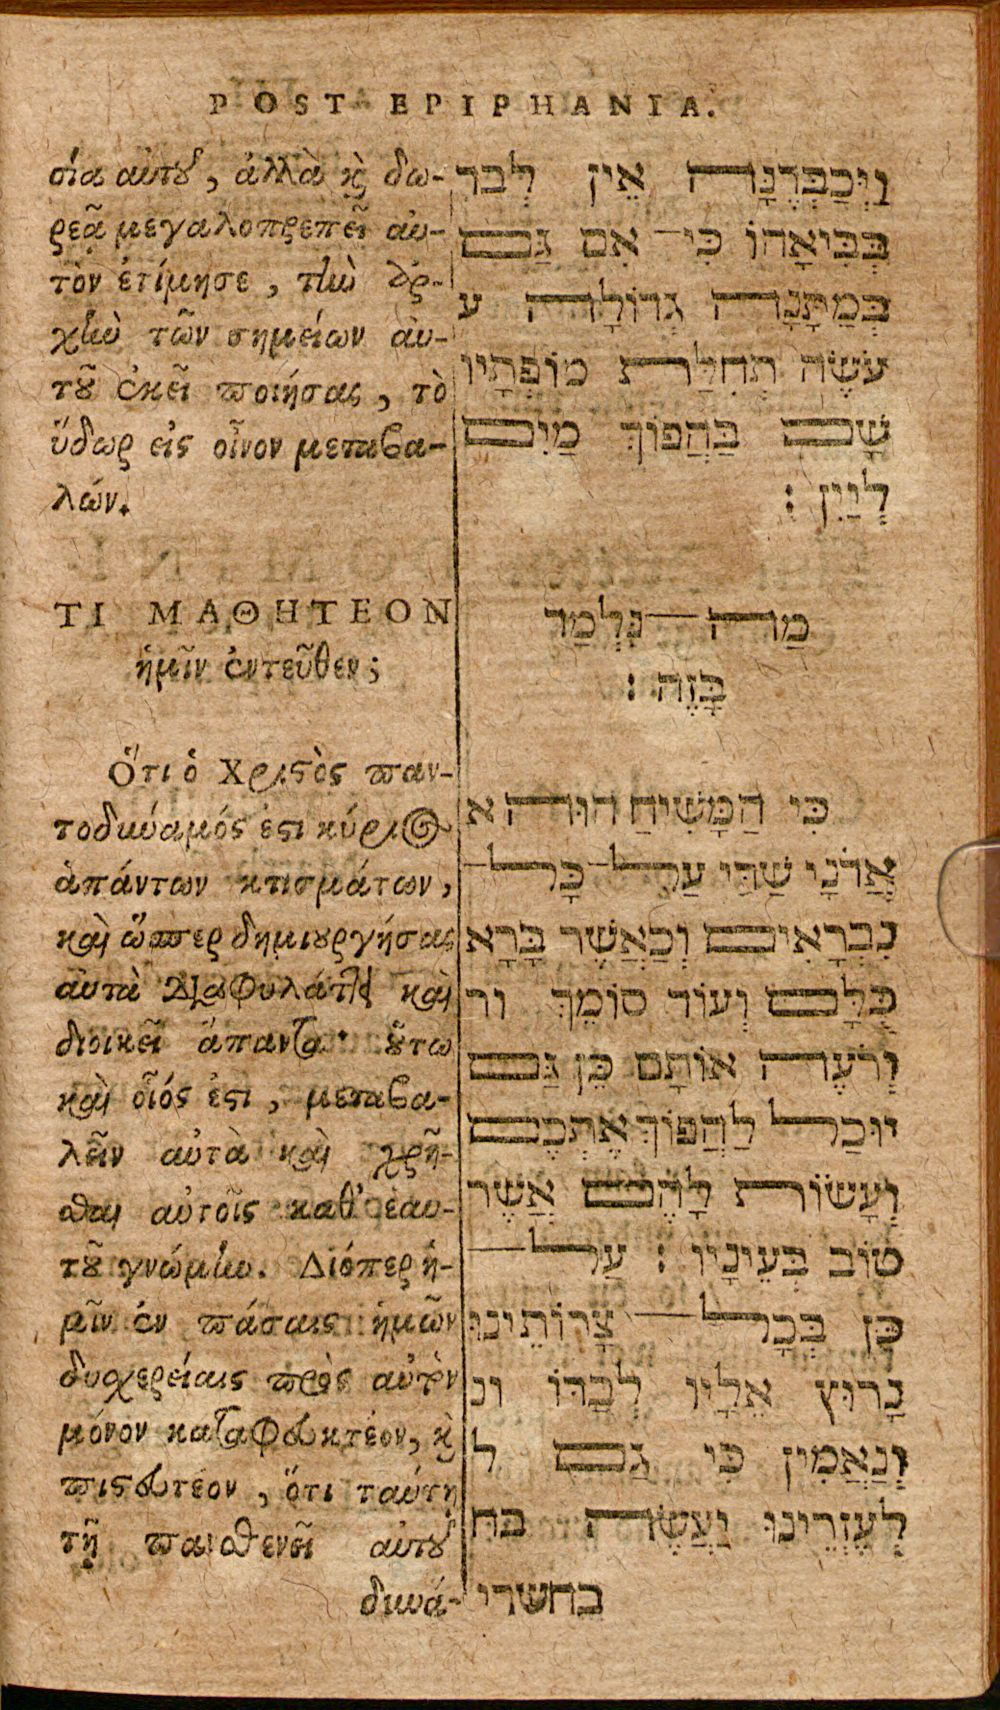 POST EPIPHANIA.
σία αὐτοῦ, ἀλλὰ κὶ δω-
ρεᾷ μεγαλοπρεπεῖ αὐ-
τὸν ἐτίμησε, τὴν ἀρ-
χὴν τῶν σημείων αὐ-
τοῦ ἐκεῖ ποιήσας, τὸ
ὕδωρ εἰς οἶνον μεταβα-
λών.
ΤΙ ΜΑΘΗΤΕΟΝ
ἡμῖν ἐντεῦθεν;
Ὅτι ὁ Χριστὸς παν-
τοδύναμός ἐστι κύριος
ἁπάντων κτισμάτων,
καὶ ὥσπερ δημιουργήσας
αὐτὰ διαφυλάττει καὶ
διοικεῖ ἅπαντα· οὕτω
καὶ οἷός ἐστι, μεταβα-
λεῖν αὐτὰ καὶ χρῆ-
σθαι αὐτοῖς καθ' ἑαυ-
τοῦ γνώμην. Διόπερ ἡ-
μῖν ἐν πάσαις ἡμῶν
δυσχερείαις πρὸς αὐτὸν
μόνον καταφευκτέον, κὶ
πιστευτέον, ὅτι ταύτῃ
τῇ πανσθενεῖ αὐτοῦ
δυνά-
וְּכַבְּדֶנָּה אֵין לְבד
בְּבִיאָהוֹ כִּי־ אִם גַּם
בְּמַתָּנָה גְדוֹלָה ע
עֹשֶׂה תְחִלַּת מוֹפְתָיו
שָׁם בַּהֲפוֹךְ מַיִם
לְיַיִן :
מַה־ נִּלְמַד
בָּזֶה :
כִּי הַמָּשִׁיחַ הוּה א
אֲדֹנָי שַׁדַּי עַל־ כָּל־
נִבְרָאִים וְכַאֲשֶׁר בָּרָא
כֻּלָּם וְעוֹד סוֹמֵךְ ור
וְרֹעֶה אוֹתָם כֵּן גַּם
יוּכַל לַהֲפוֹךְ אֶתְכֶם
וְעָשׂוֹת לָהֶם אֲשֶׁר
טוֹב בְּעֵינָיו : עַל־
כֵּן בְּכָל־ צָרוֹתֵינוּ
נָרוּץ אֵלָיו לְבַדּוֹ ונ
וְנַאֲמִין כִּי גַּם ל
לְעֶזְרֵינוּ יַעֲשֶׂה בח
בחשרי